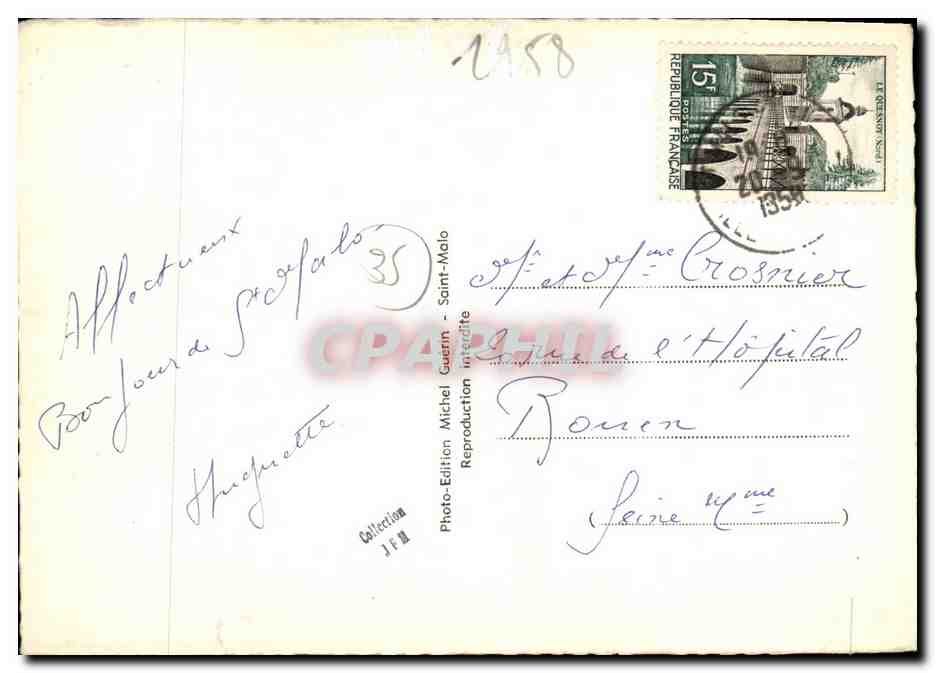 1958
15F
POSTES
REPUBLIQUE FRANÇAISE
LE QUESNOY (Nord)
19
20
1958
Affectueux
Bonjour de St Malo
Huguette
35
Collection
JFM
Photo-Edition Michel Guérin - Saint-Malo
Reproduction interdite
CPAPHIL
Mr et Mme Crosnier
rue de l'Hôpital
Rouen
(Seine Mme)